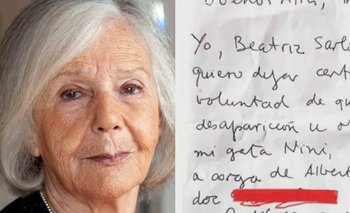 Buenos Aires,
Yo, Beatriz Sarl
quiero dejar cert
voluntad de qu
desaparición u o
mi gata Nini,
a cargo de Albert
doc